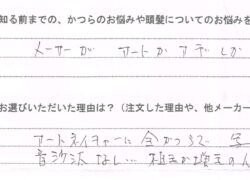 知る前までの、かつらのお悩みや頭髪についてのお悩みを
メーカーが アートか アデしか
お選びいただいた理由は？（注文した理由や、他メーカー
アートネイチャーに 全かつらで
音沙汰なし… 雑毛が増えの